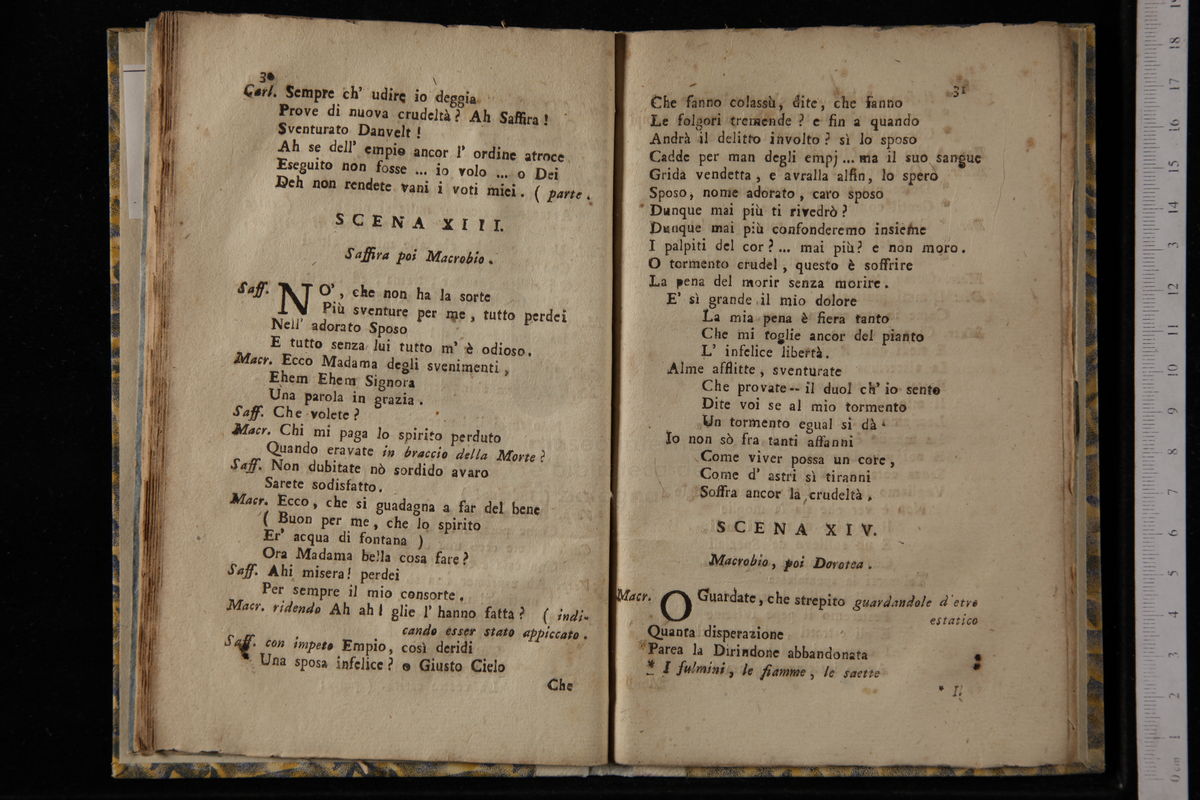 30
Carl. Sempre ch' udire io deggia
Prove di nuova crudeltà? Ah Saffira!
Sventurato Danvelt!
Ah se dell' empio ancor l' ordine atroce
Eseguito non fosse ... io volo ... o Dei
Deh non rendete vani i voti miei. ( parte.
SCENA XIII.
Saffira poi Macrobio.
Saff. NO', che non ha la sorte
Più sventure per me, tutto perdei
Nell' adorato Sposo
E tutto senza lui tutto m' è odioso.
Macr. Ecco Madama degli svenimenti,
Ehem Ehem Signora
Una parola in grazia.
Saff. Che volete?
Macr. Chi mi paga lo spirito perduto
Quando eravate in braccio della Morte?
Saff. Non dubitate nò sordido avaro
Sarete sodisfatto.
Macr. Ecco, che si guadagna a far del bene
( Buon per me, che lo spirito
Er' acqua di fontana )
Ora Madama bella cosa fare?
Saff. Ahi misera! perdei
Per sempre il mio consorte.
Macr. ridendo Ah ah! glie l' hanno fatta? ( indi-
cando esser stato appiccato.
Saff. con impeto Empio, così deridi
Una sposa infelice? o Giusto Cielo
Che
31
Che fanno colassù, dite, che fanno
Le folgori tremende? e fin a quando
Andrà il delitto involto? sì lo sposo
Cadde per man degli empj ... ma il suo sangue
Grida vendetta, e avralla alfin, lo spero
Sposo, nome adorato, caro sposo
Dunque mai più ti rivedrò?
Dunque mai più confonderemo insieme
I palpiti del cor? ... mai più? e non moro.
O tormento crudel, questo è soffrire
La pena del morir senza morire.
E' sì grande il mio dolore
La mia pena è fiera tanto
Che mi toglie ancor del pianto
L' infelice libertà.
Alme afflitte, sventurate
Che provate -- il duol ch' io sento
Dite voi se al mio tormento
Un tormento egual si dà.
Io non sò fra tanti affanni
Come viver possa un core,
Come d' astri sì tiranni
Soffra ancor la crudeltà.
SCENA XIV.
Macrobio, poi Dorotea.
Macr. OGuardate, che strepito guardandole d'etro
estatico
Quanta disperazione
Parea la Dirindone abbandonata
* I fulmini, le fiamme, le saette
* Il